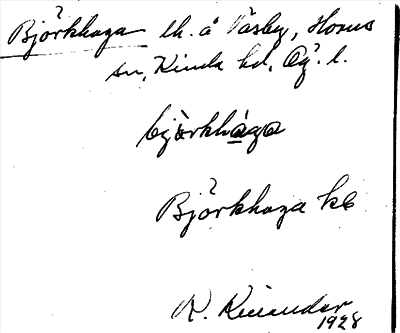 Björkhaga lh. å Päsby, Horns
sn, Kinda hd, Ög. l.
bjö̀rkhága
Björkhaga kb
K. Kinander
1928